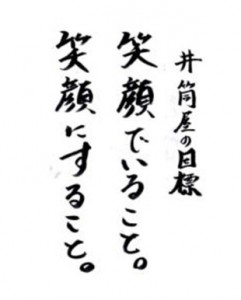 井筒屋の目標
笑顔でいること。
笑顔にすること。